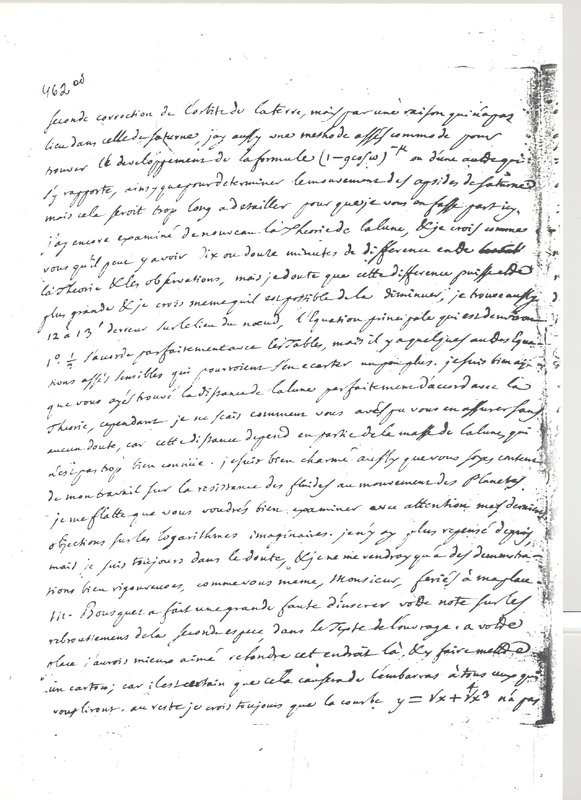 462 od
seconde correction de l'orbite de la terre, mais par une raison qui n'a pas
lieu dans celle de saturne. j'ay aussy une methode assés commode pour
trouver le developpement de la formule (1-g cos ω)^-μ ou d'une autre qui
s'y rapporte, ainsy que pour determiner le mouvement des apsides de saturne
mais cela seroit trop long a detailler pour que je vous en fasse part icy.
j'ay encore examiné de nouveau la Theorie de la lune, & je crois comme
vous qu'il peut y avoir dix ou douze minutes de difference entre
la Theorie & les observations, mais je doute que cette difference puisse etre
plus grande & je crois meme qu'il est possible de la diminuer, je trouve aussy
12 a 13' d'erreur sur le lieu du nœud, l'Equation principale qui est d'environ
1°. ½ s'accorde parfaitement avec les Tables, mais il y a quelques autres Equa-
tions assés sensibles qui pourroient s'en ecarter un peu plus. je suis bien aise
que vous ayés trouvé la distance de la lune parfaitement d'accord avec la
Theorie, cependant je ne sçais comment vous avés pu vous en assurer sans
aucun doute, car cette distance depend en partie de la masse de la lune, qui
n'est pas trop bien connüe. je suis bien charmé aussy que vous soyés content
de mon travail sur la resistance des fluides au mouvement des Planetes
je me flatte que vous voudrés bien examiner avec attention mes dernieres
objections sur les logarithmes imaginaires. je n'y ay plus repensé depuis,
mais je suis toujours dans le doute, & je ne me rendray qu'a des demonstra-
tions bien rigoureuses, comme vous meme, Monsieur, feriés à ma place.
Mr. Bousquet a fait une grande faute d'inserer votre note sur les
rebroussemens de la seconde espece dans le Texte de l'ouvrage. a votre
place j'aurois mieux aimé refondre cet endroit là, & y faire mettre
un carton; car il est certain que cela causera de l'embarras à tous ceux qui
vous liront. au reste je crois toujours que la courbe y = √x + ∜x³ n'a pas